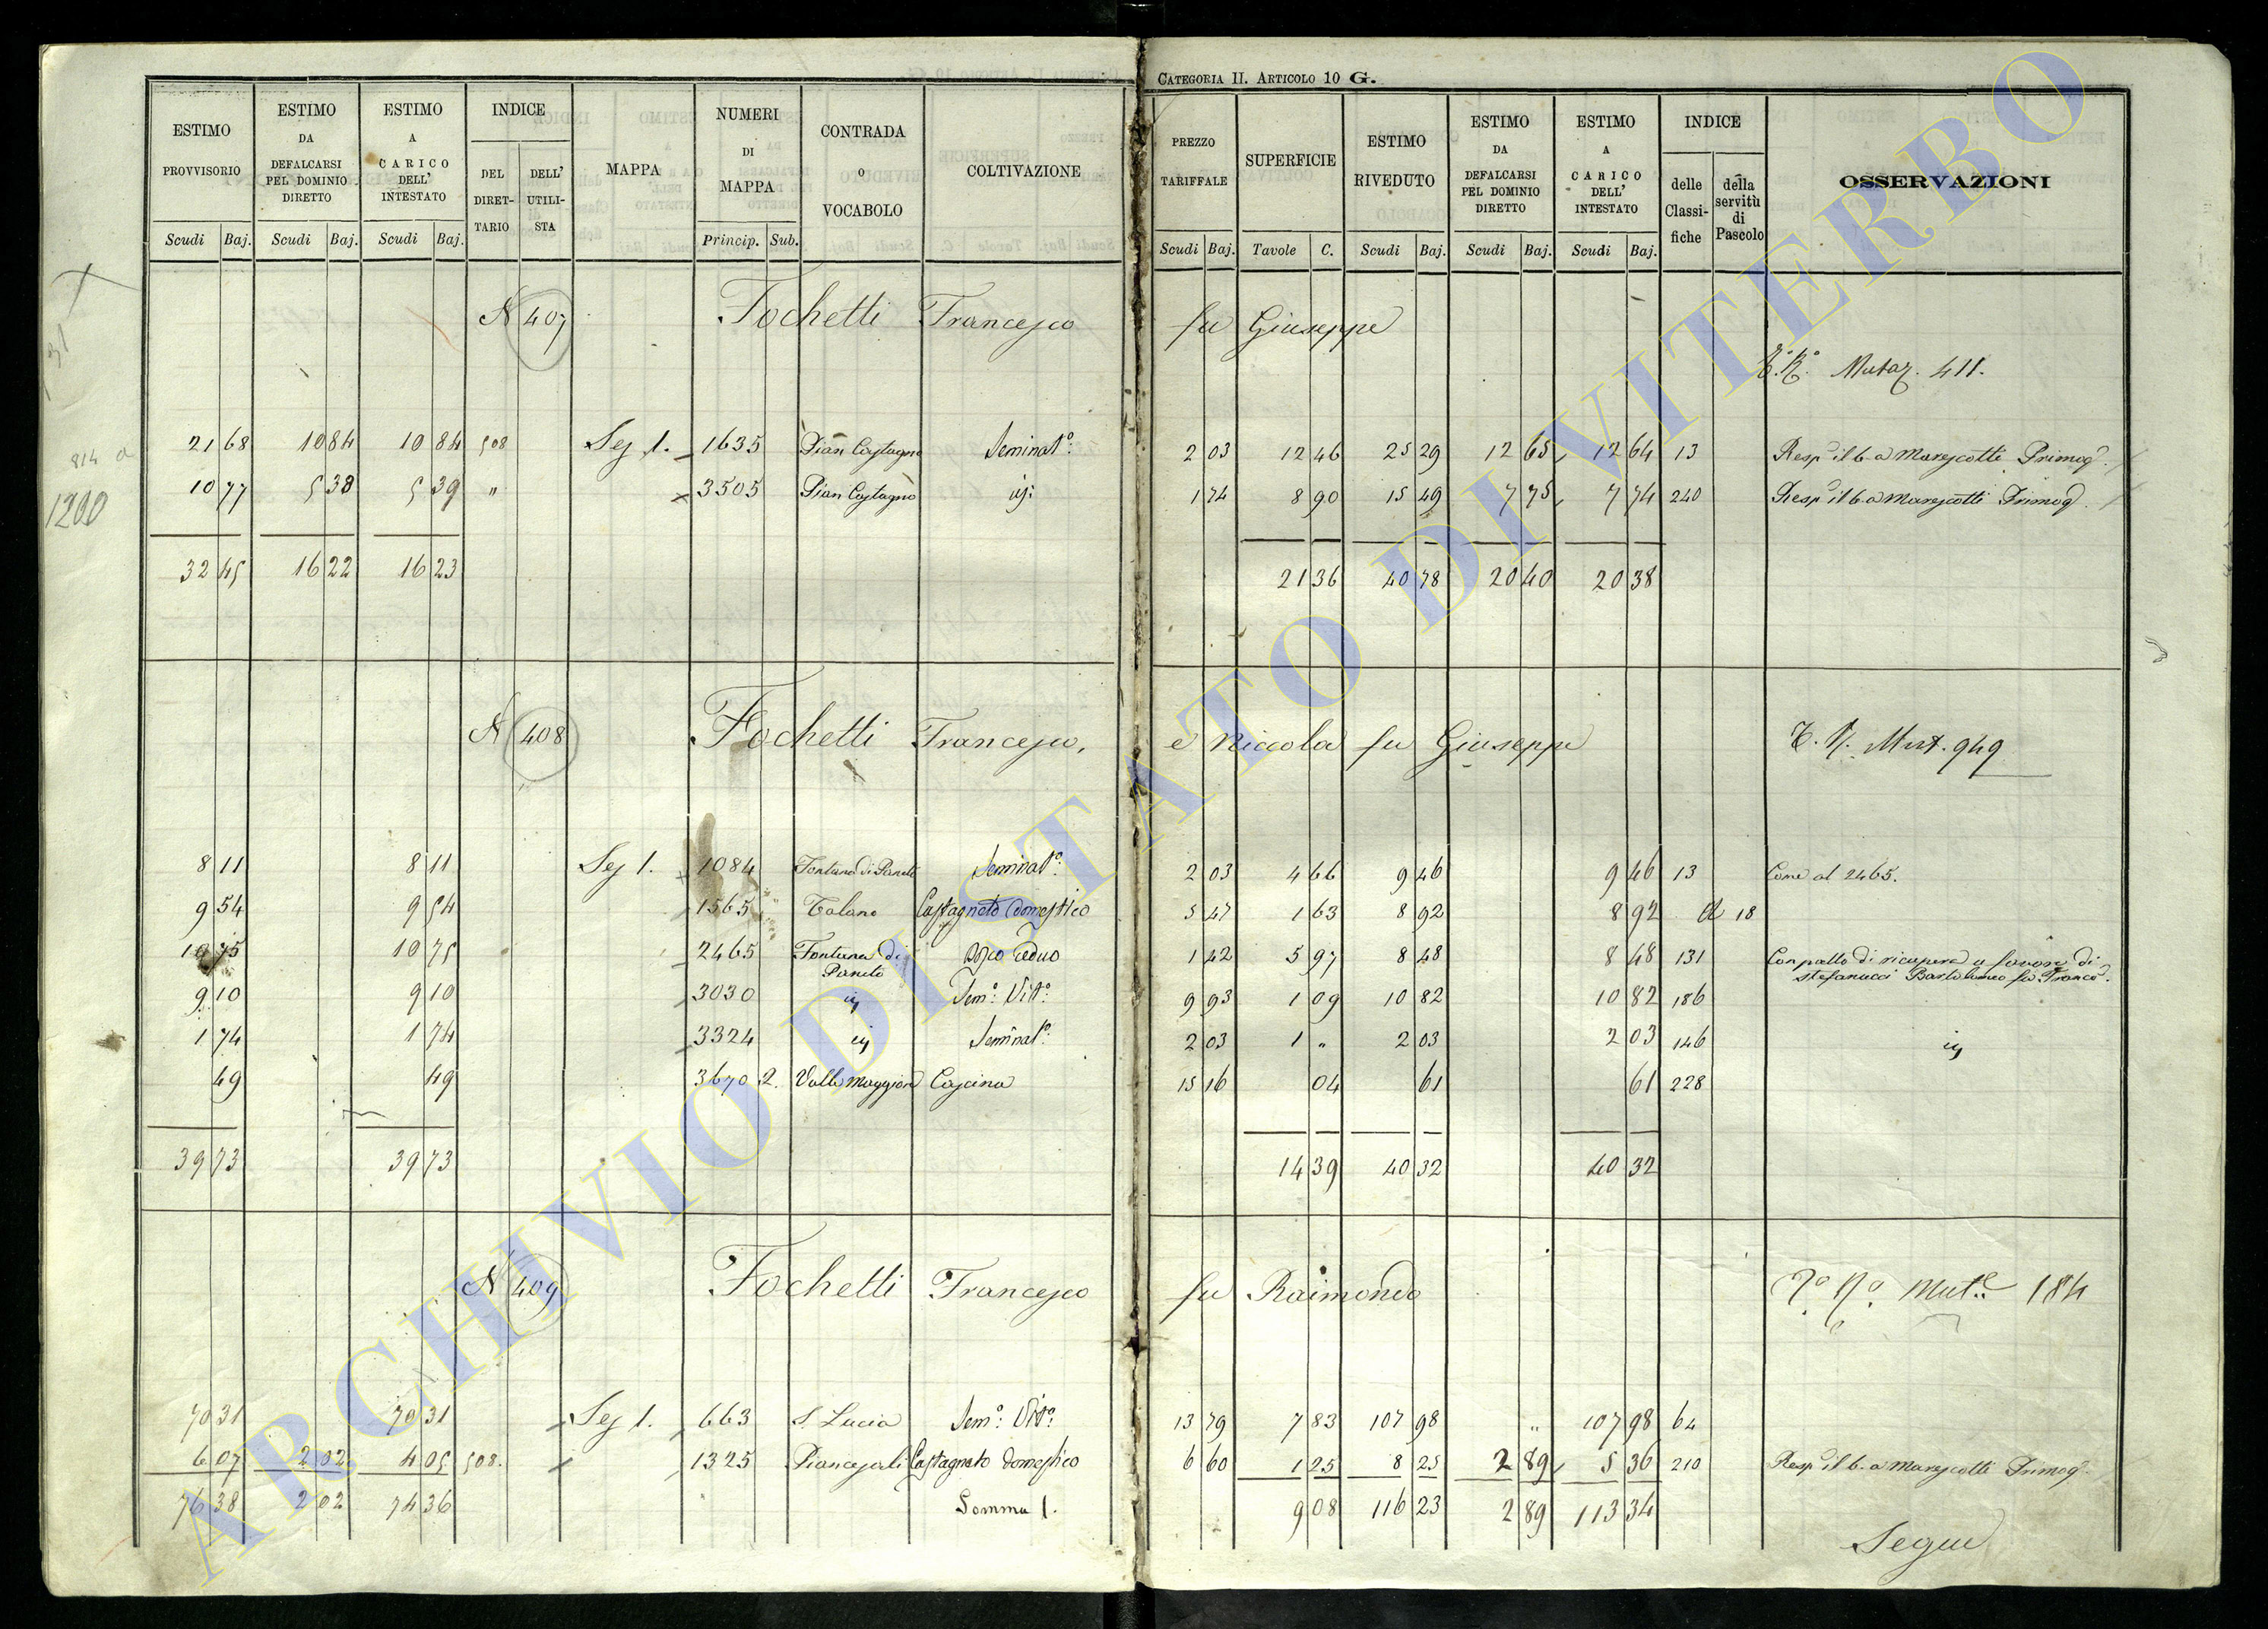 CATEGORIA II. ARTICOLO 10 G.
ESTIMO PROVVISORIO Scudi Baj.
ESTIMO DA DEFALCARSI PEL DOMINIO DIRETTO Scudi Baj.
ESTIMO A CARICO DELL' INTESTATO Scudi Baj.
INDICE DEL DIRET-TARIO DELL' UTILI-STA
MAPPA
NUMERI DI MAPPA Princip. Sub.
CONTRADA O VOCABOLO
COLTIVAZIONE
PREZZO TARIFFALE Scudi Baj.
SUPERFICIE Tavole C.
ESTIMO RIVEDUTO Scudi Baj.
ESTIMO DA DEFALCARSI PEL DOMINIO DIRETTO Scudi Baj.
ESTIMO A CARICO DELL' INTESTATO Scudi Baj.
INDICE delle Classi-fiche della servitù di Pascolo
OSSERVAZIONI
N 407 Fochetti Francesco fu Giuseppe
Mutaz. 411.
814 a
1200
21 68 10 84 10 84 508 Sez 1. 1635 Pian Castagno Seminat°: 2 03 12 46 25 29 12 65 12 64 13 Resp il 6 a Marescotti Primog
10 77 5 38 5 39 " 3505 Pian Castagno 1 74 8 90 15 49 7 75 7 74 240 Resp il 6 a Marescotti Primog
32 45 16 22 16 23 21 36 40 78 20 40 20 38
N 408 Fochetti Francesco, e Niccola fu Giuseppe
Mut. 949
8 11 8 11 Sez 1. 1084 Fontana di Paneto Seminat°: 2 03 4 66 9 46 9 46 13 Come al 2465.
9 54 9 54 1565 Talano Castagneto domestico 5 47 1 63 8 92 8 92 18
10 75 10 75 2465 Fontana di Paneto Bosco ceduo 1 42 5 97 8 48 8 48 131 Con patto di ricupera a favore di
Stefanucci Bartolomeo fu Franco.
9 10 9 10 3030 Sem°: Vit°: 9 93 1 09 10 82 10 82 186
1 74 1 74 3324 Seminat°: 2 03 1 " 2 03 2 03 146
49 49 3670 2. Valle Maggiore Cascina 15 16 04 61 61 228
39 73 39 73 14 39 40 32 40 32
N 409 Fochetti Francesco fu Raimondo
184
70 31 70 31 Sez 1. 663 S. Lucia Sem°: Vit°: 13 79 7 83 107 98 " 107 98 64
6 07 2 02 4 05 508. 1325 Piancasali Castagneto domestico 6 60 1 25 8 25 2 89 5 36 210 Resp il 6 a Marescotti Primog
76 38 2 02 74 36 Somma 1. 9 08 116 23 2 89 113 34
Segue
ARCHIVIO DI STATO DI VITERBO